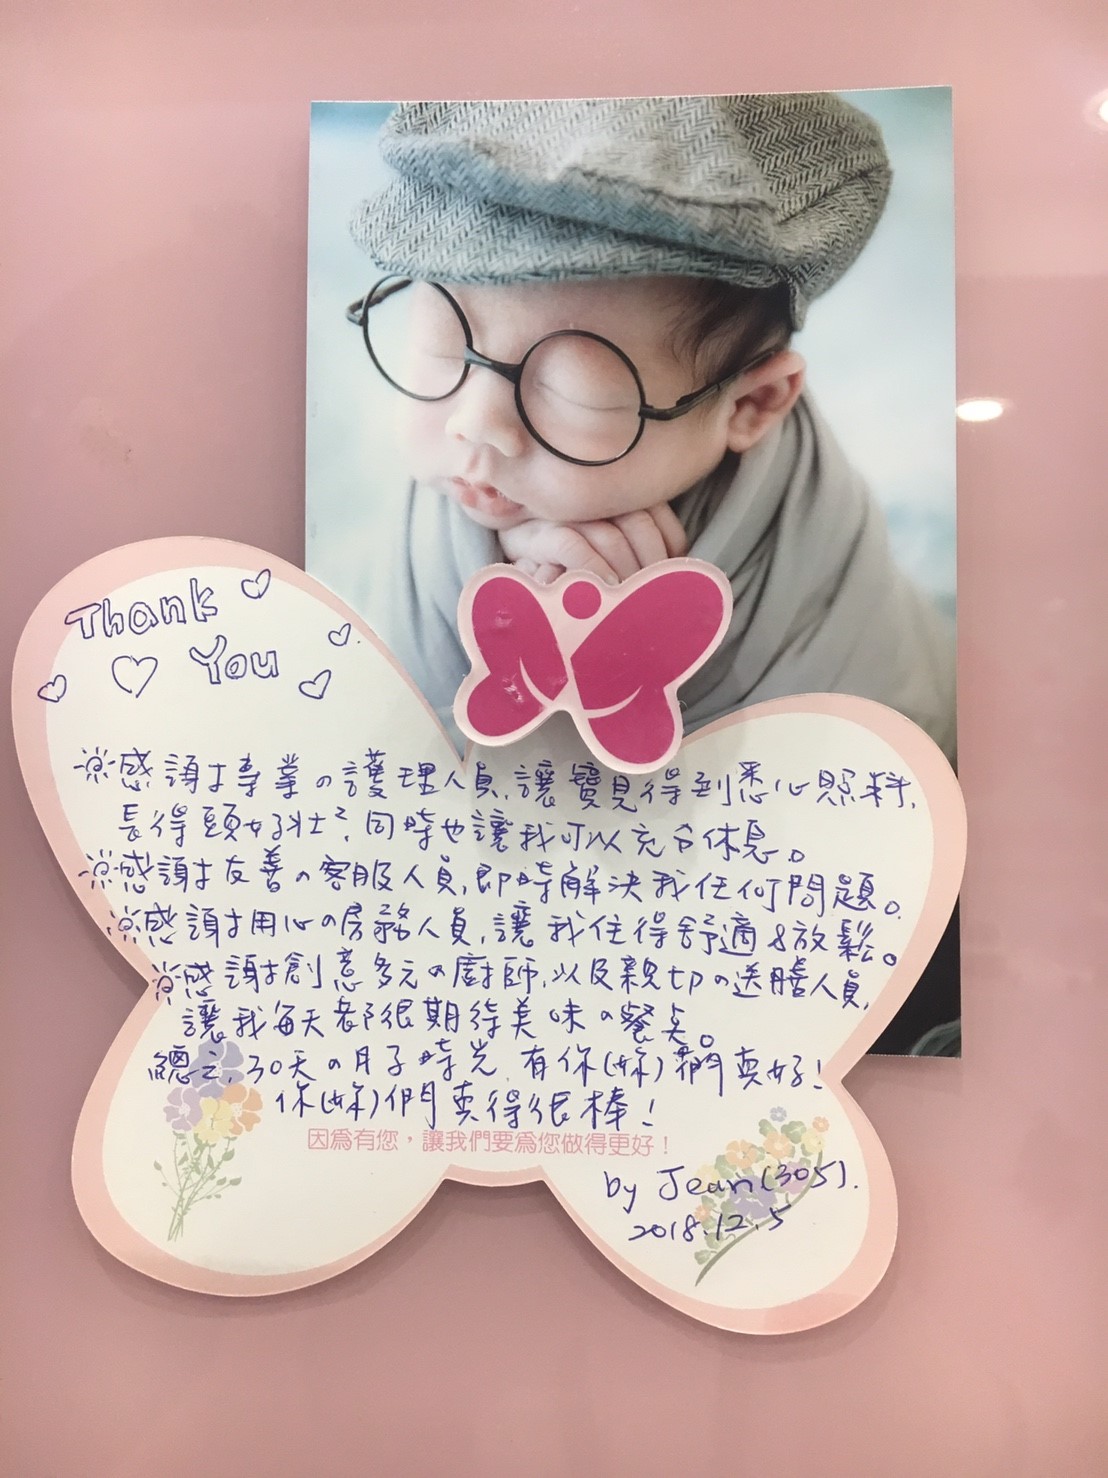 Thank
You
※感謝專業の護理人員,讓寶見得到悉心照料,
長得頭好壯²,同時也讓我可以充分休息。
※感謝友善の客服人員,即時解決我任何問題。
※感謝用心の房務人員,讓我住得舒適&放鬆。
※感謝創意多元の廚師,以及親切の送膳人員,
讓我每天都很期待美味の餐點。
總之,30天の月子時光,有你(妳)們真好!
你(妳)們真得很棒!
因為有您，讓我們要為您做得更好！
by Jean(305).
2018.12.5